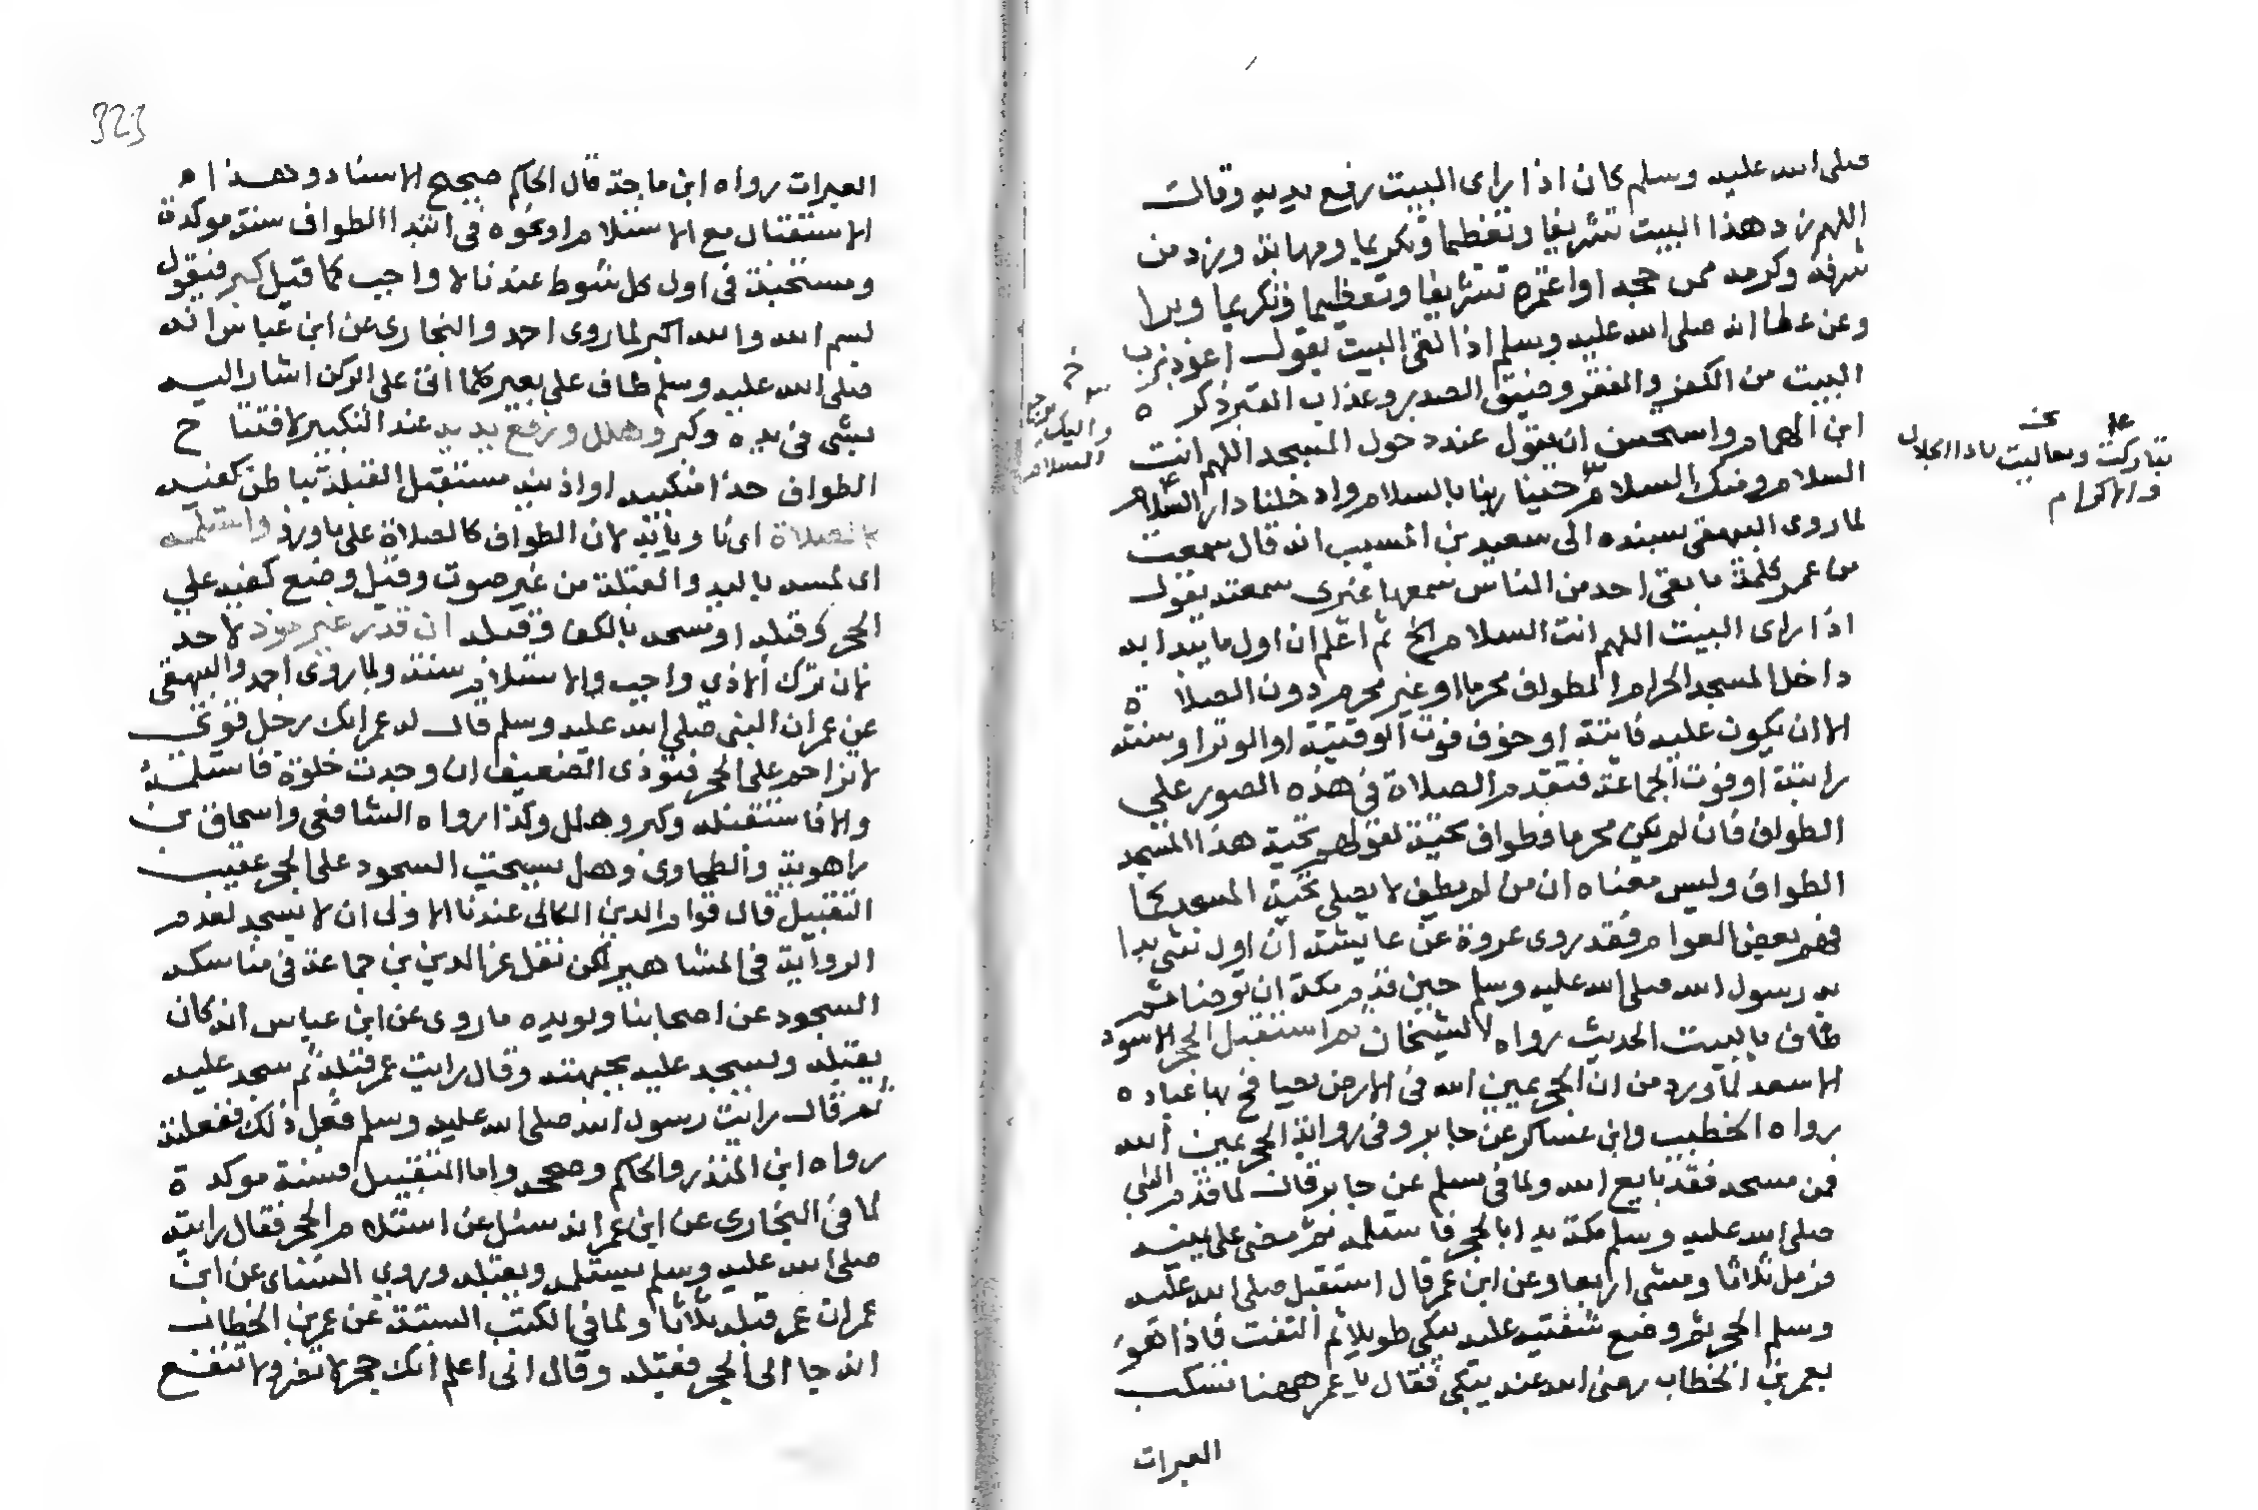 صلى الله عليه وسلم كان اذا راى البيت رفع يديه وقال
اللهم زد هذا البيت تشريفا وتعظيما وتكريما ومهابة وزد من
شرفه وكرمه ممن حجه او اعتمره تشريفا وتعظيما وتكريما وبرا
وعن عطا انه صلى الله عليه وسلم اذا لقى البيت يقول اعوذ برب
البيت من الكفر والفقر وضيق الصدر وعذاب القبر ذكر ه
ابن الهمام واستحسن ان يقول عند دخول المسجد اللهم انت
السلام ومنك السلام حينا ربنا بالسلام وادخلنا دار السلام
واليك يرجع السلام
تباركت وتعاليت ياذا الجلال
والاكرام
لما روى البيهقى بسنده الى سعيد بن المسيب انه قال سمعت
من عمر كلمة ما بقى احد من الناس سمعها غيرى سمعته يقول
اذا راى البيت اللهم انت السلام الخ ثم اعلم ان اول ما يبدا به
داخل المسجد الحرام الطواف محرما او غير محرم دون الصلا ة
الا ان يكون عليه فائتة او خوف فوت الوقتية او الوتر او سنة
راتبة او فوت الجماعة فتقدم الصلاة فى هذه الصور على
الطواف فان لم يكن محرما فطواف تحية لقولهم تحية هذا المسجد
الطواف وليس معناه ان من لم يطف لا يصلى تحية المسجد كما
فهم بعض العوام فقد روى عروة عن عايشة ان اول شى بدا
به رسول الله صلى الله عليه وسلم حين قدم مكة ان توضا ثم
طاف بالبيت الحديث رواه الشيخان ثم استقبل الحجر الاسود
الاسعد لما ورد من ان الحجر يمين الله فى الارض يصافح بها عباده
رواه الخطيب وابن عساكر عن جابر وفى رواية الحجر يمين الله
فمن مسحه فقد بايع الله ولما فى مسلم عن جابر قال لما قدم النبى
صلى الله عليه وسلم مكة بدا بالحجر فاستلمه ثم مضى على يمينه
فرمل ثلاثا ومشى اربعا وعن ابن عمر قال استقبل صلى الله عليه
وسلم الحجر ثم وضع شفتيه عليه يبكى طويلا ثم التفت فاذا هو
بعمر بن الخطاب رضى الله عنه يبكى فقال يا عمر ههنا تسكب
العبرات
323
العبرات رواه ابن ماجة قال الحاكم صحيح الاسناد وهذا
الاستقبال مع الاستلام او نحوه فى ابتدا الطواف سنة موكدة
ومستحبة فى اول كل شوط عندنا لا واجب كما قيل كبر فيقول
بسم الله والله اكبر لما روى احمد والبخارى عن ابن عباس انه
صلى الله عليه وسلم طاف على بعير كلما اتى على الركن اشار اليه
بشى فى يده وكبر وهلل ورفع يديه عند التكبير لافتتا ح
الطواف حذا منكبيه او اذنيه مستقبل القبلة بباطن كفيه
كالصلاة اى ناويا به لان الطواف كالصلاة على ما ورد واستلمه
اى لمسه باليد والقبلة من غير صوت وقيل وضع كفيه على
الحجر وقبله او مسحه بالكف وقبله ان قدر غير موذ لاحد
لان ترك الاذى واجب والاستلام سنة ولما روى احمد والبيهقى
عن عمر ان النبى صلى الله عليه وسلم قال له عمر انك رجل قوى
لا تزاحم على الحجر فتوذى الضعيف ان وجدت خلوة فاستلمه
والا فاستقبله وكبر وهلل وكذا رواه الشافعى واسحاق بن
راهوية والطحاوى وهل يستحب السجود على الحجر عقيب
التقبيل قال قوام الدين الكاكى عندنا الاولى ان لا يسجد لعدم
الرواية فى المشاهير لكن نقل عز الدين بن جماعة فى مناسكه
السجود عن اصحابنا ويويده ما روى عن ابن عباس انه كان
يقبله ويسجد عليه بجبهته وقال رايت عمر قبله ثم سجد عليه
ثم قال رايت رسول الله صلى الله عليه وسلم فعل ذلك ففعلته
رواه ابن المنذر والحاكم وصححه واما التقبيل فسنة موكد ة
لما فى البخارى عن ابن عمر انه سئل عن استلام الحجر فقال رايته
صلى الله عليه وسلم يستلمه ويقبله وروى النساى عن ابن
عمر ان عمر قبله ثلاثا ولما فى الكتب الستة عن عمر بن الخطاب
انه جا الى الحجر فقبله وقال انى اعلم انك حجر لا تضر ولا تنفع